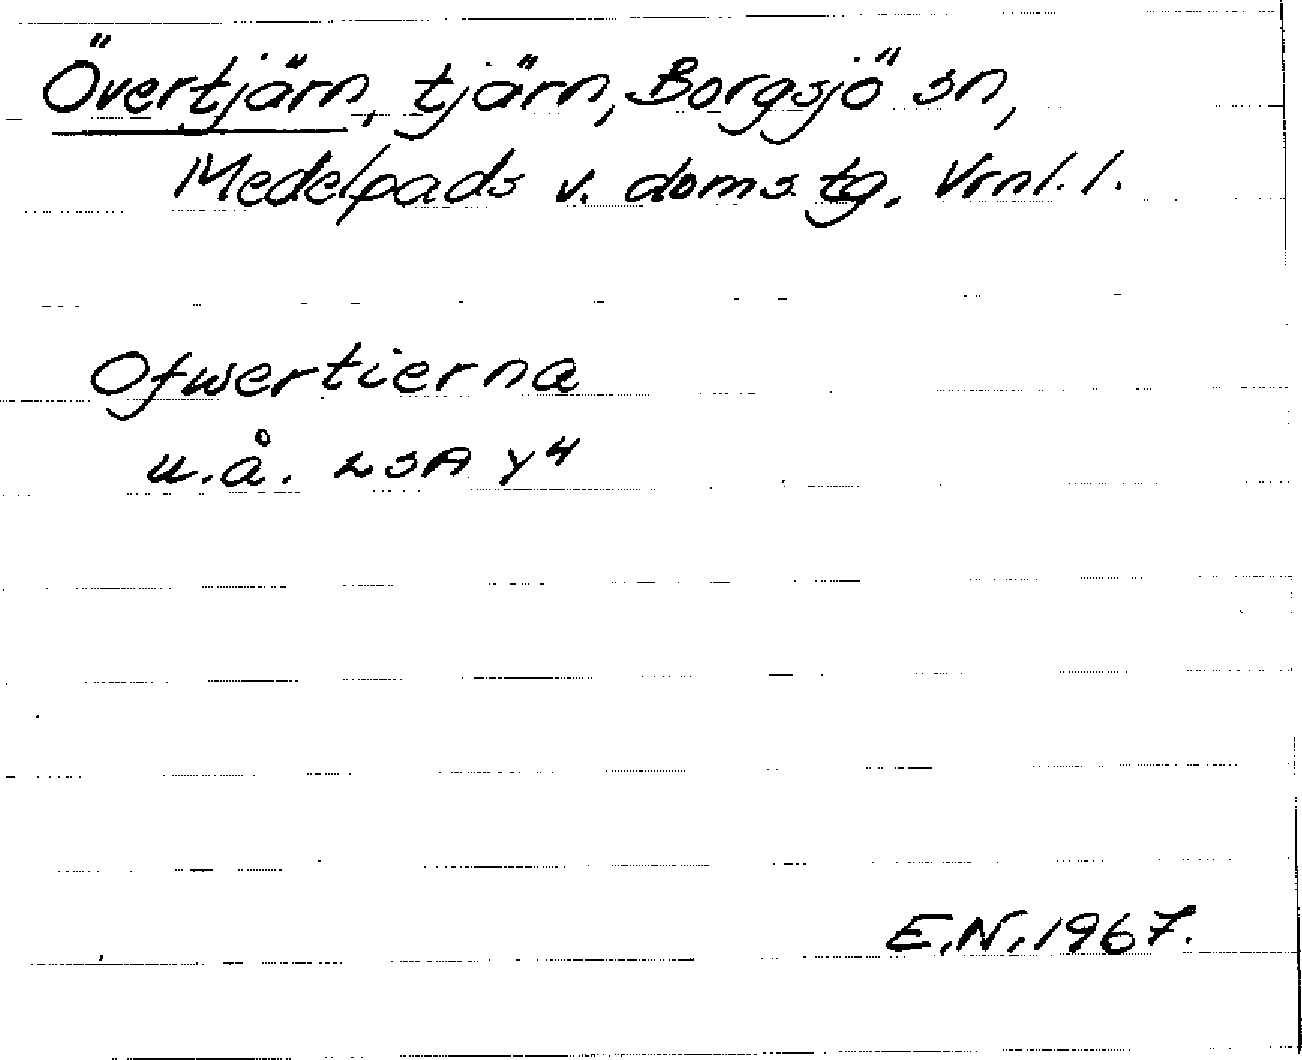 Övertjärn, tjärn, Borgsjö sn,
Medelpads v. doms.tg. Vrnl. l.
Ofwertierna
u.å. LSA Y4
E.N. 1967.